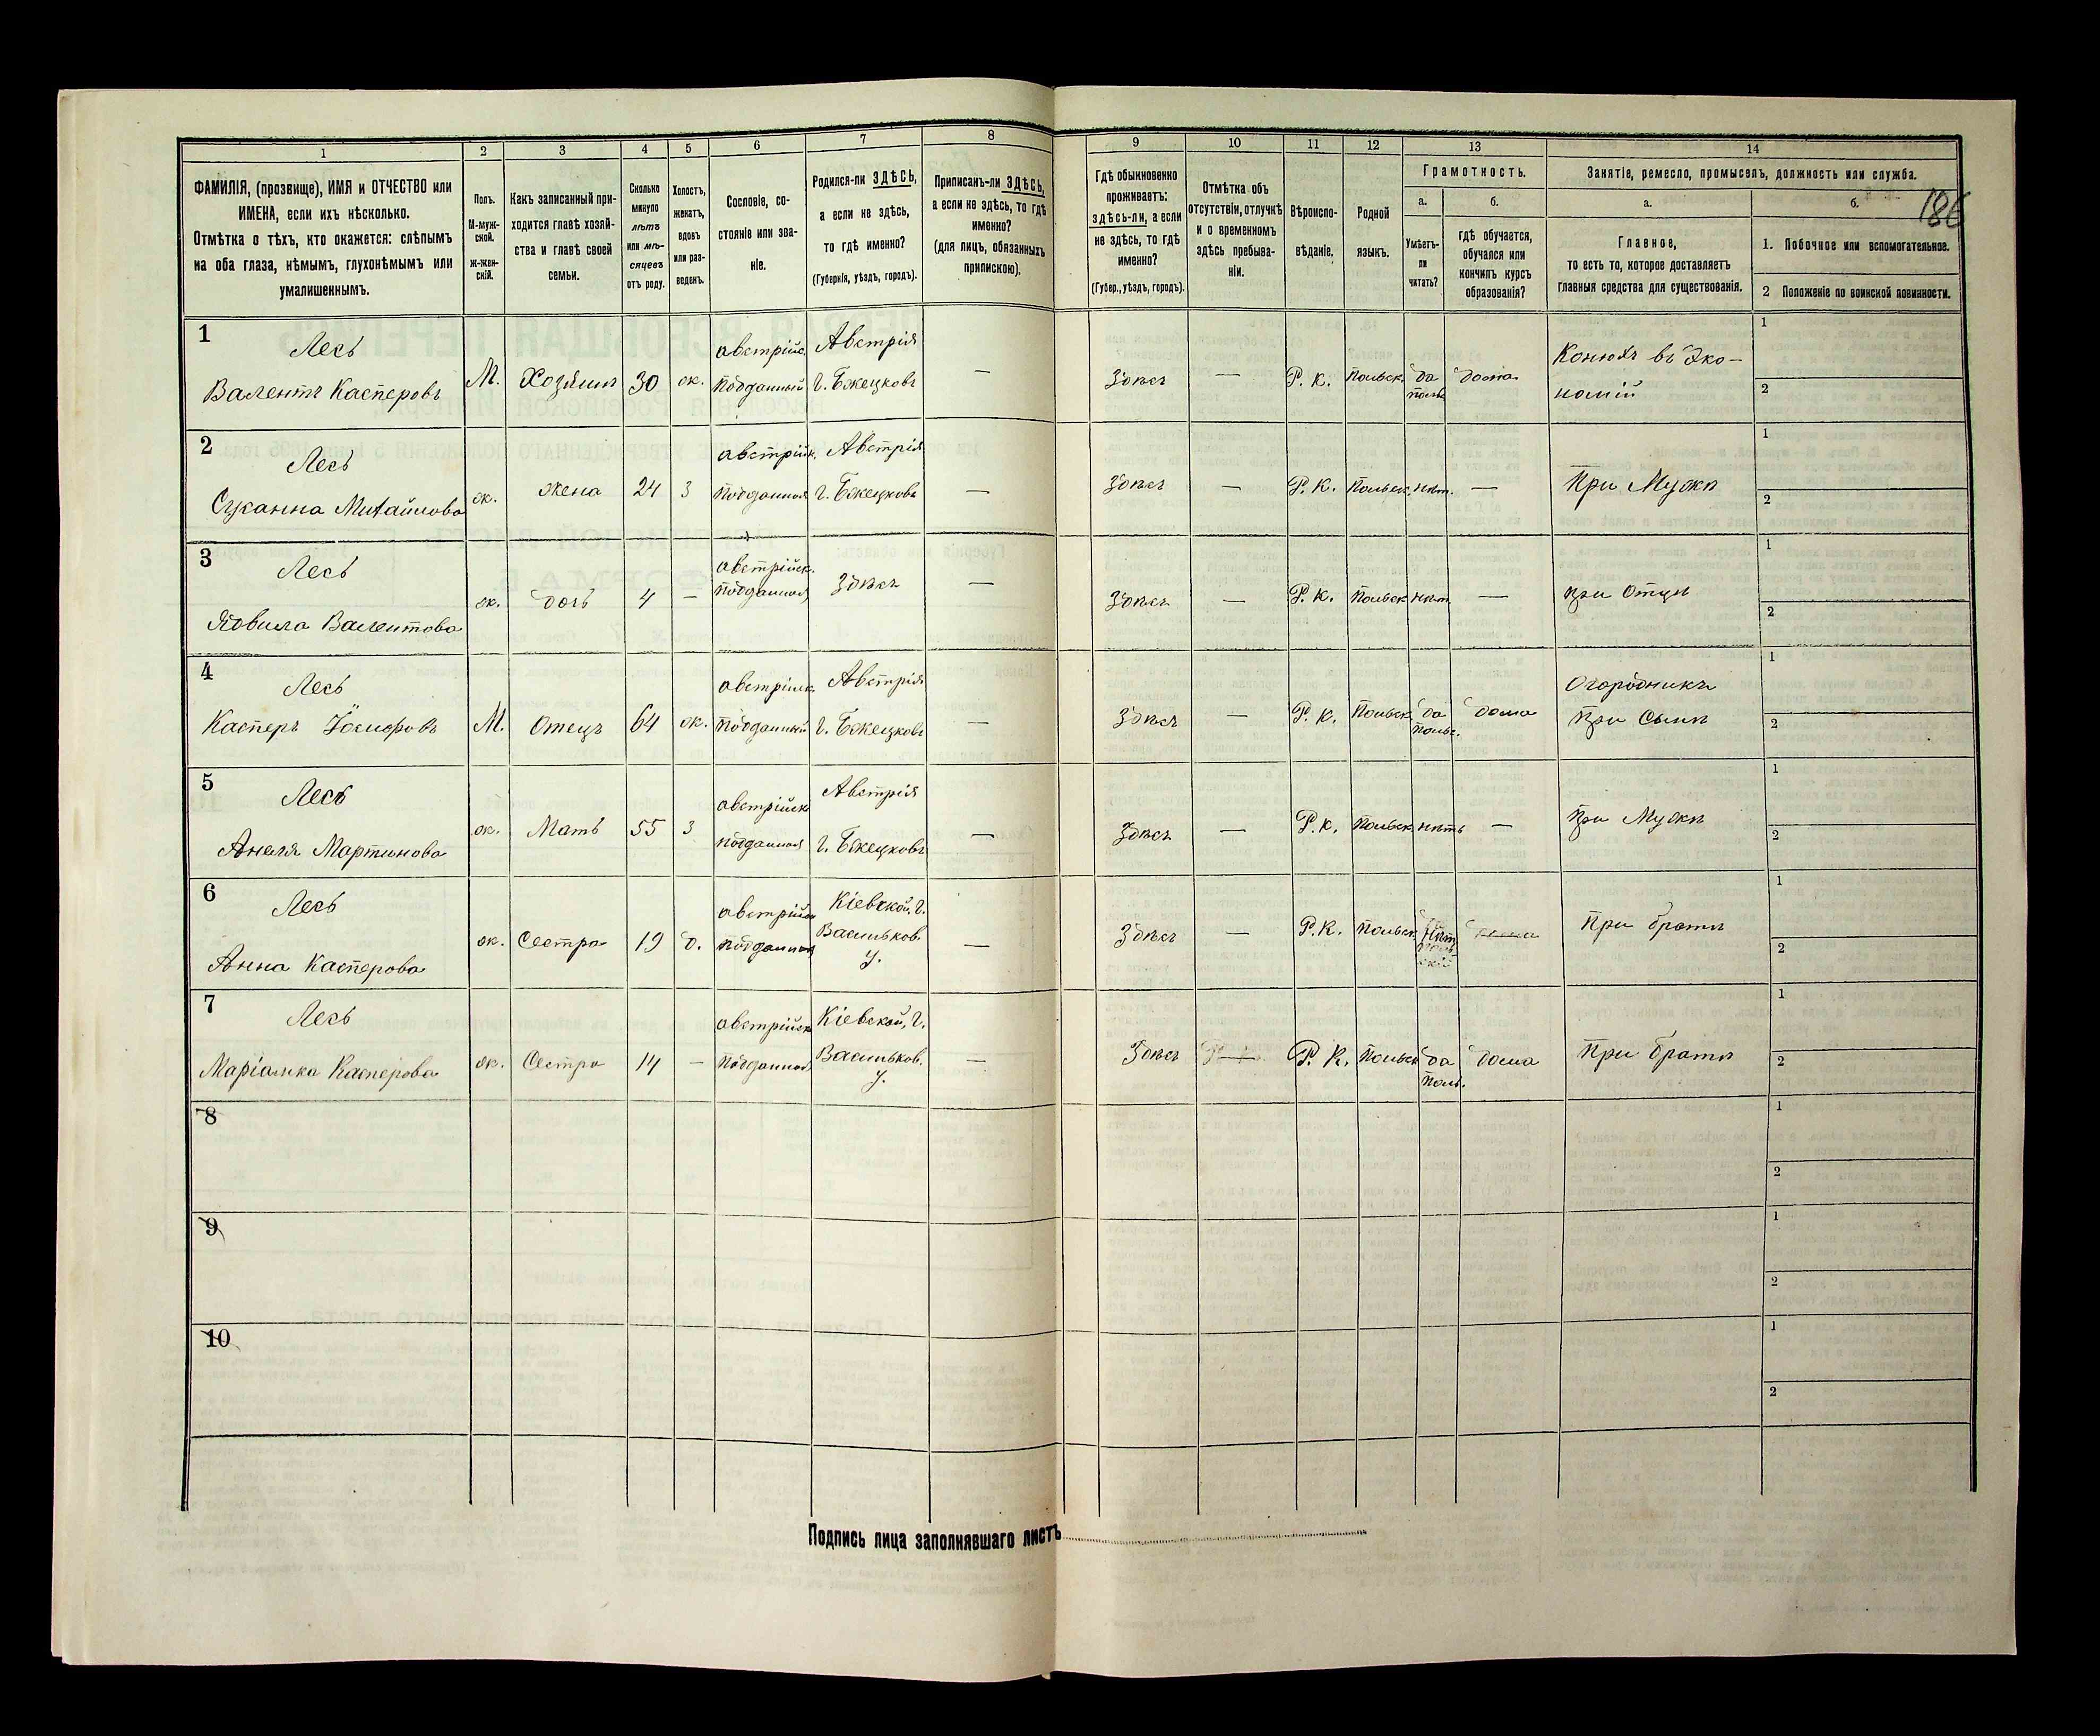 1 2 3 4 5 6 7 8 9 10 11 12 13 14
ФАМИЛІЯ, (прозвище), ИМЯ и ОТЧЕСТВО или
ИМЕНА, если ихъ нѣсколько.
Отмѣтка о тѣхъ, кто окажется: слѣпымъ
на оба глаза, нѣмымъ, глухонѣмымъ или
умалишеннымъ.
Полъ.
М-муж-
ской.
Ж-жен-
скій.
Какъ записанный при-
ходится главѣ хозяй-
ства и главѣ своей
семьи.
Сколько
минуло
лѣтъ
или мѣ-
сяцевъ
отъ роду.
Холостъ,
женатъ,
вдовъ
или раз-
веденъ.
Сословіе, со-
стояніе или зва-
ніе.
Родился-ли ЗДѢСЬ,
а если не здѣсь,
то гдѣ именно?
(Губернія, уѣздъ, городъ).
Приписанъ-ли ЗДѢСЬ,
а если не здѣсь, то гдѣ
именно?
(для лицъ, обязанныхъ
припискою).
Гдѣ обыкновенно
проживаетъ:
здѣсь-ли, а если
не здѣсь, то гдѣ
именно?
(Губер., уѣздъ, городъ).
Отмѣтка объ
отсутствіи, отлучкѣ
и о временномъ
здѣсь пребыва-
ніи.
Вѣроиспо-
вѣданіе.
Родной
языкъ.
Грамотность.
а.
Умѣетъ-
ли
читать?
б.
гдѣ обучается,
обучался или
кончилъ курсъ
образованія?
Занятіе, ремесло, промыселъ, должность или служба.
а.
Главное,
то есть то, которое доставляетъ
главныя средства для существованія.
б.
1. Побочное или вспомогательное.
2 Положеніе по воинской повинности.
186
1
Лесь
Валентъ Касперовъ
М. Хозяинъ 30 ж.
австрійс.
подданный
Австрія
г. Бжецковъ
—
Здѣсь — Р. К. польск. да
польс
дома
Конюхъ въ Эко-
номіи
1
2
2
Лесь
Сузанна Михайлова
ж. жена 24 з
австрійск.
подданная
Австрія
г. Бжецковъ
—
Здѣсь — Р. К. польск. нѣт. —
При Мужѣ
1
2
3
Лесь
Ядвига Валентова
ж. дочь 4 —
австрійск.
подданная
Здѣсь
—
Здѣсь — Р. К. польск нѣт —
при отцѣ
1
2
4
Лесь
Касперъ Іосифовъ
М. Отецъ 64 ж.
австрійск.
подданный
Австрія
г. Бжецковъ
—
Здѣсь — Р. К. польск да
польс.
дома
Огородникъ
при Сынѣ
1
2
5
Лесь
Анеля Мартинова
ж. Мать 55 з
австрійск
подданная
Австрія
г. Бжецковъ
—
Здѣсь — Р. К. польск нѣтъ —
при Мужѣ
1
2
6
Лесь
Анна Касперова
ж. Сестра 19 д.
австрійск
подданная
Кіевской, г.
Васильков.
у.
—
Здѣсь — Р. К. польск нѣт
дома
При братѣ
1
2
7
Лесь
Маріанка Касперова
ж. Сестра 14 —
австрійск
подданная
Кіевской, г.
Васильков.
у.
—
Здѣсь Р. К. польск да
поль.
дома
При братѣ
1
2
8
1
2
9
1
2
10
1
2
Подпись лица заполнявшаго листъ